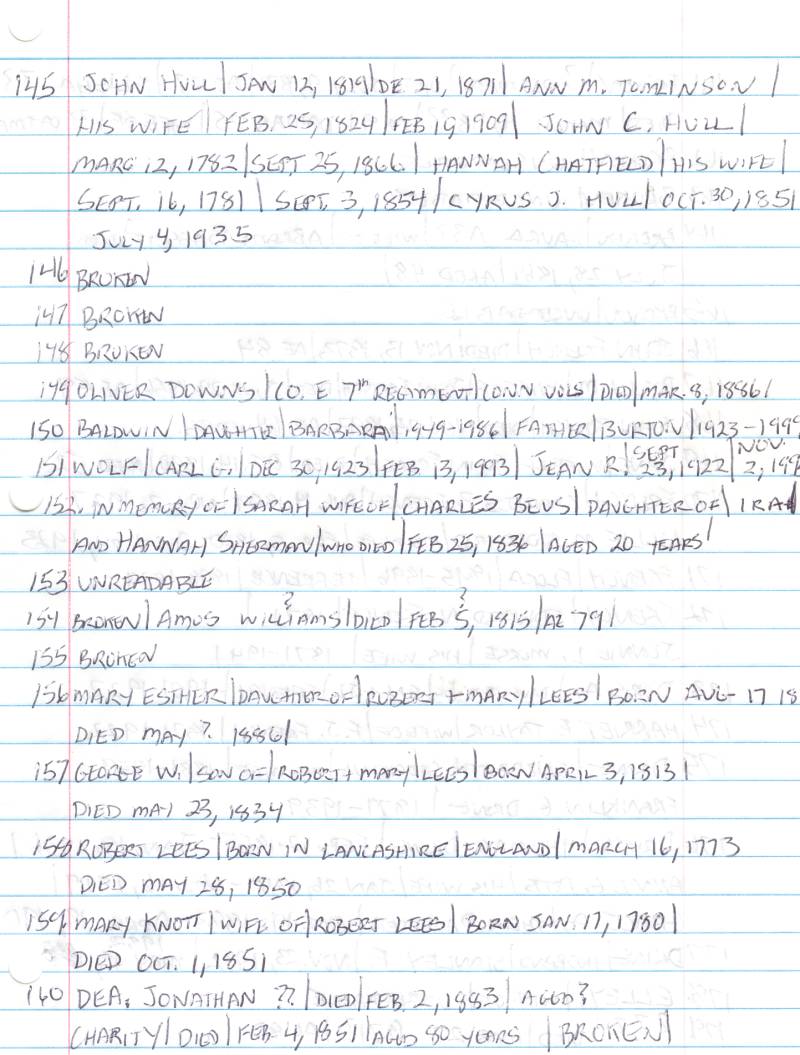 145 JOHN HULL | JAN 12, 1819 | DE 21, 1871 | ANN M. TOMLINSON |
HIS WIFE | FEB. 25, 1824 | FEB 19, 1909 | JOHN C. HULL |
MARC 12, 1782 | SEPT 25, 1866 | HANNAH CHATFIELD | HIS WIFE |
SEPT. 16, 1781 | SEPT. 3, 1854 | CYRUS J. HULL | OCT. 30, 1851
JULY 4, 1935
146 BROKEN
147 BROKEN
148 BROKEN
149 OLIVER DOWNS | CO. E 7th REGIMENT | CONN VOLS | DIED | MAR. 8, 1886 |
150 BALDWIN | DAUGHTER | BARBARA | 1949-1986 | FATHER | BURTON | 1923-1999
151 WOLF | CARL G. | DEC 30, 1923 | FEB 13, 1993 | JEAN R. | SEPT 23, 1922 | NOV. 2, 199
152. IN MEMORY OF | SARAH WIFE OF | CHARLES BEUS | DAUGHTER OF | IRA |
AND HANNAH SHERMAN | WHO DIED | FEB 25, 1836 | AGED 20 YEARS |
153 UNREADABLE
154 BROKEN | AMOS WILLIAMS? | DIED | FEB 5?, 1815 | AE 79 |
155 BROKEN
156 MARY ESTHER | DAUGHTER OF | ROBERT + MARY | LEES | BORN AUG- 17 18
DIED MAY ? 1886 |
157 GEORGE W. | SON OF | ROBERT + MARY | LEES | BORN APRIL 3, 1813 |
DIED MAY 23, 1834
158 ROBERT LEES | BORN IN LANCASHIRE | ENGLAND | MARCH 16, 1773
DIED MAY 28, 1850
159. MARY KNOTT | WIFE OF | ROBERT LEES | BORN JAN. 17, 1780 |
DIED OCT. 1, 1851
160 DEA. JONATHAN ?? | DIED | FEB. 2, 1883 | AGED ?
CHARITY | DIED | FEB 4, 1851 | AGED 80 YEARS | BROKEN |